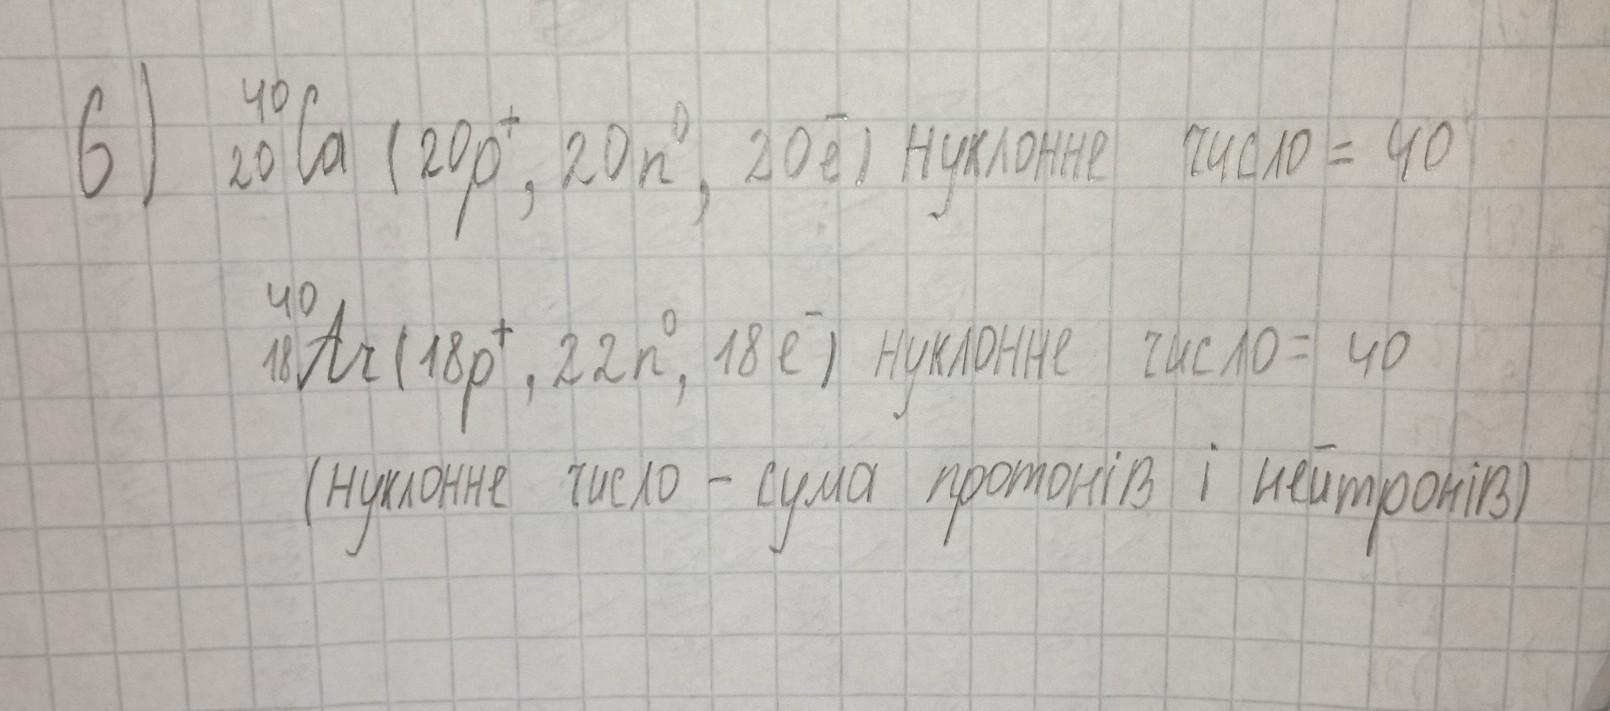 6) ⁴⁰₂₀Ca (20p⁺, 20n⁰, 20e⁻) нуклонне число = 40
⁴⁰₁₈Ar (18p⁺, 22n⁰, 18e⁻) нуклонне число = 40
(нуклонне число – сума протонів і нейтронів)